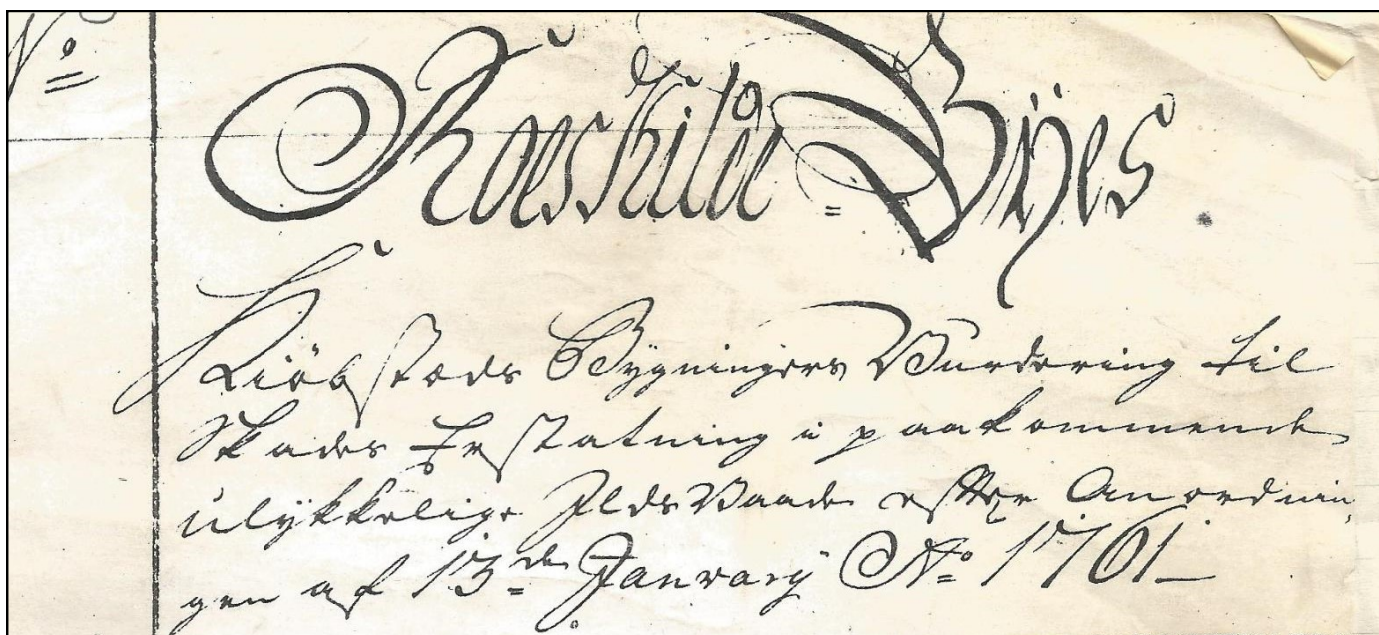 No
Roeskilde = Byes
Kiøbstæds Bygningers Vurdering til
Skades Erstatning i paakommende
ulykkelige IldsVaade efter Anordnin
gen af 13de January Ao 1761